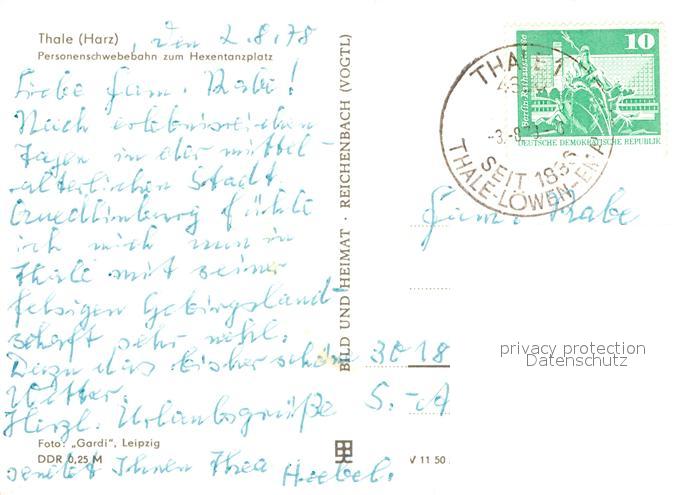 Thale (Harz)
, den 2.8.78
Personenschwebebahn zum Hexentanzplatz
Liebe Fam. Rabe!
Nach erlebnisreichen
Tagen in der mittel-
alterlichen Stadt
Quedlinburg fühle
ich mich nun in
Thale mit seiner
felsigen Gebirgsland-
schaft sehr wohl.
Dazu das bisher schöne
Wetter.
Herzl. Urlaubsgrüße
sendet Ihnen Ihre
Foto: „Gardi", Leipzig
DDR 0,25 M
BILD UND HEIMAT · REICHENBACH (VOGTL)
V 11 50
THALE 1
SEIT 1836
THALE-LÖWEN-EMAIL
10
Berlin-Rathausstraße
DEUTSCHE DEMOKRATISCHE REPUBLIK
Fam. Rabe
3018
privacy protection
Datenschutz